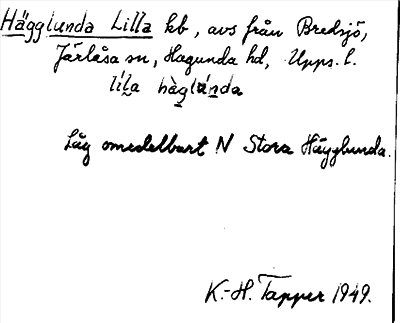 Hägglunda Lilla kb, avs från Bredsjö,
Järlåsa sn, Hagunda hd, Upps. l.
lı̀l̠a hàg̠lúǹ̠da
Låg omedelbart N Stora Hägglunda.
K.-H. Tapper 1949.